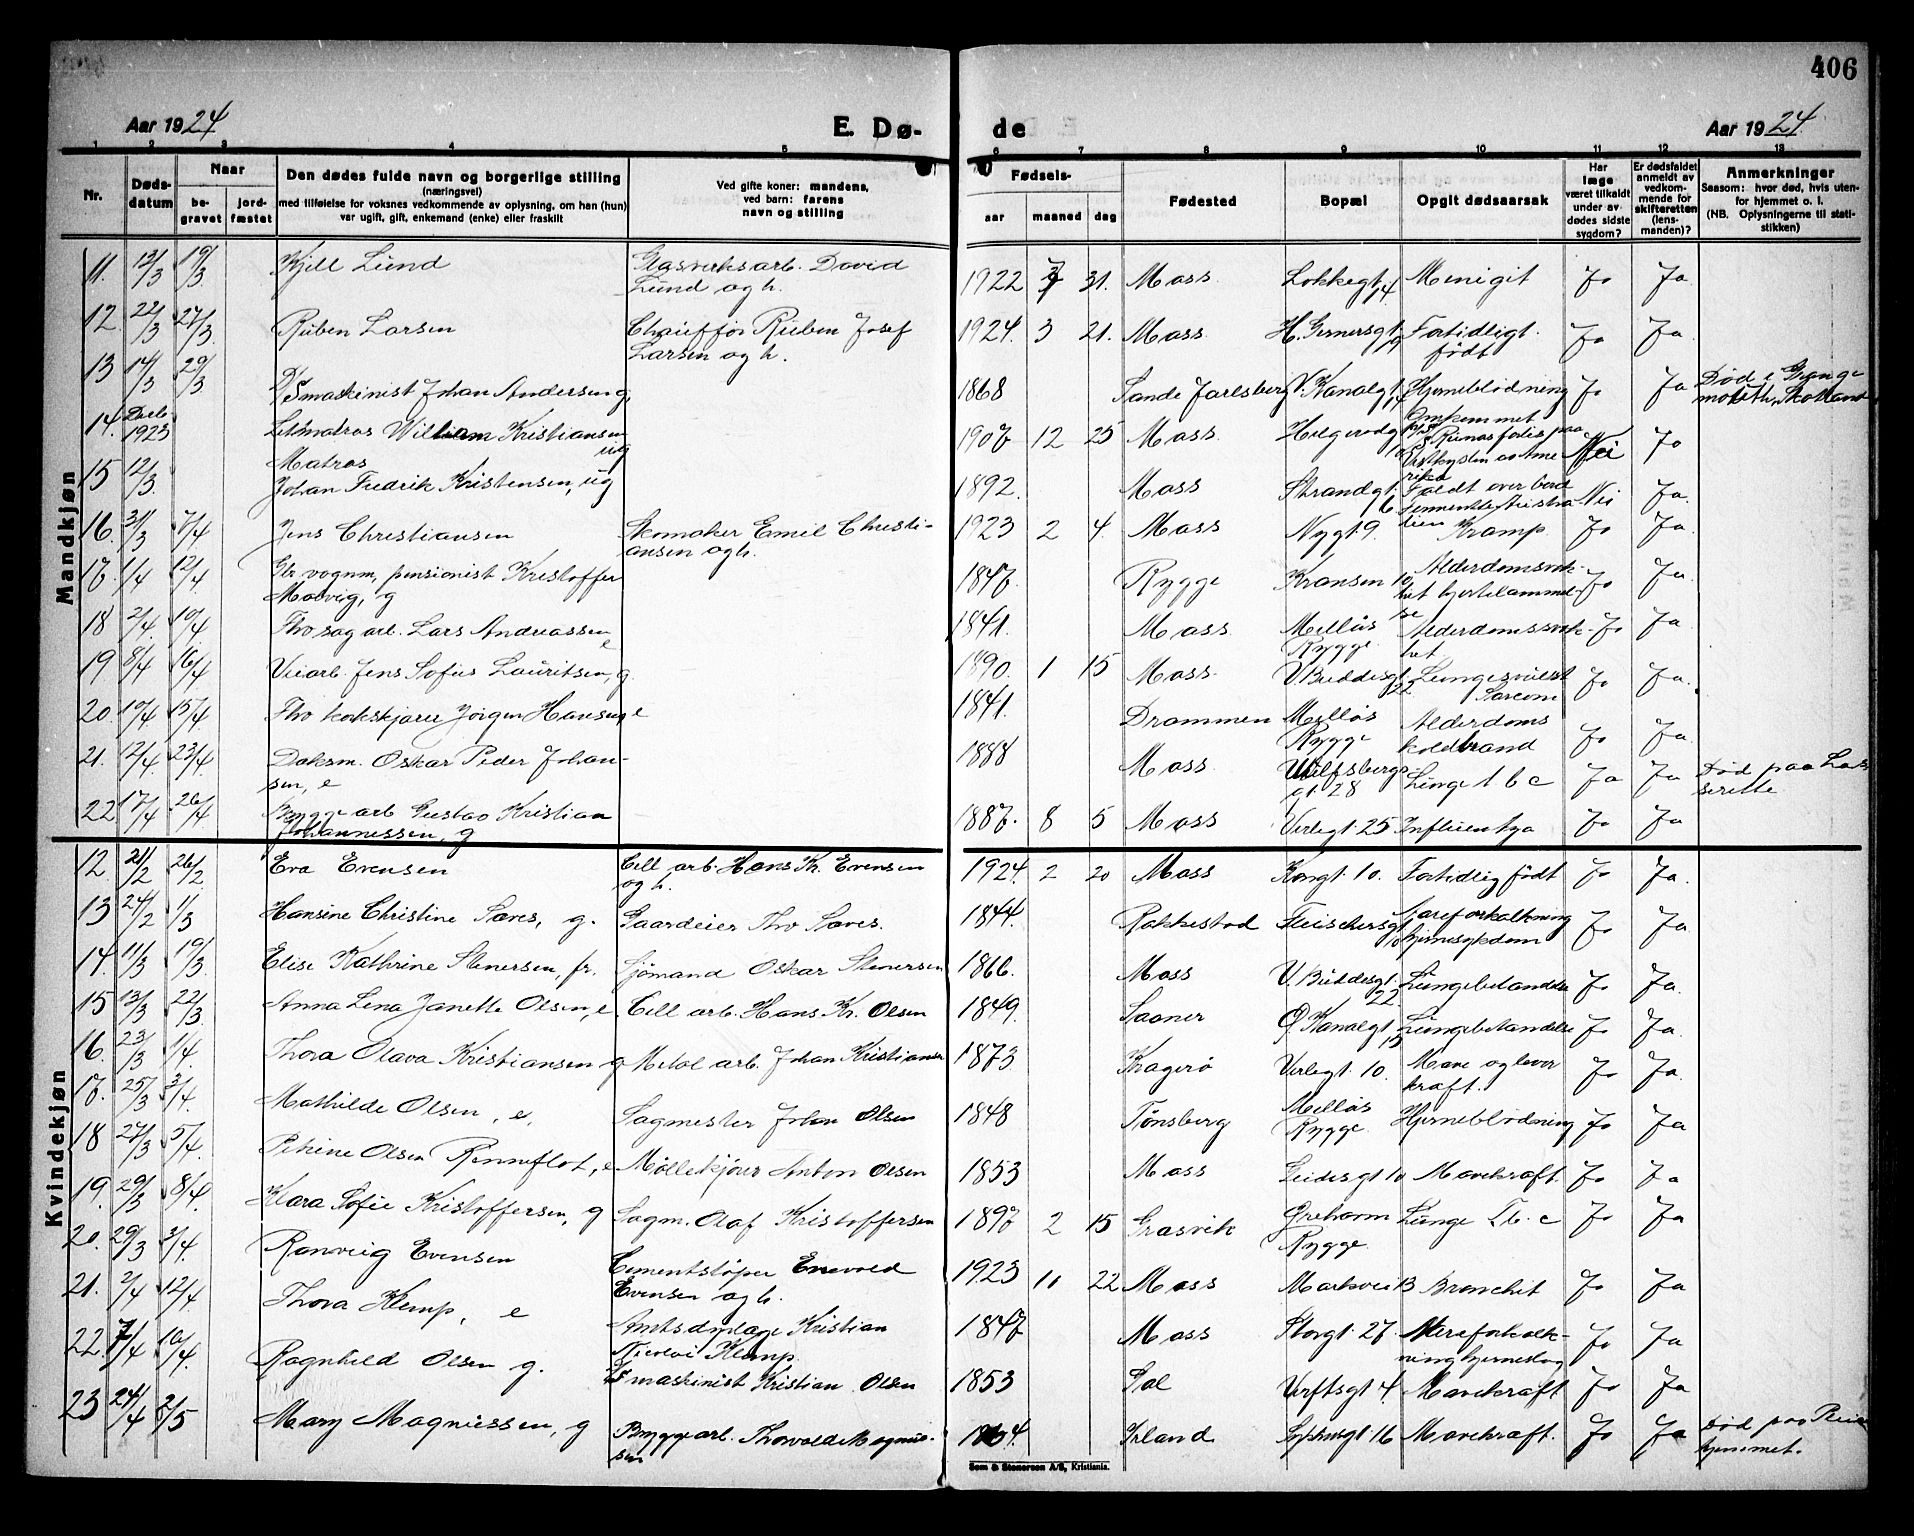 406
Aar 1924
E. Dø-
de
Aar 1924
1 2 3 4 5 6 7 8 9 10 11 12 13
Nr.
Døds-
datum
Naar
be-
gravet
jord-
fæstet
Den dødes fulde navn og borgerlige stilling
(næringsvei)
med tilføielse for voksnes vedkommende av oplysning, om han (hun)
var ugift, gift, enkemand (enke) eller fraskilt
Ved gifte koner: mandens,
ved barn: farens
navn og stilling
Fødsels-
aar
maaned
dag
Fødested
Bopæl
Opgit dødsaarsak
Har
læge
været tilkaldt
under av-
dødes sidste
sygdom?
Er dødsfaldet
anmeldt av
vedkom-
mende for
skifteretten
(lens-
manden)?
Anmerkninger
Saasom: hvor død, hvis uten-
for hjemmet o. l.
(NB. Oplysningerne til stati-
stikken)
Mandkjøn
11. 12/3 19/3 Kjell Lund Glasverksarb. David
Lund og h. 1922 31. Moss Lokkegt. 14 Menigit Ja Ja
12. 22/3 27/3 Ruben Larsen Chauffør Ruben Josef
Larsen og h. 1924. 3 21. Moss H. Gernersgt. Fortidligt
født Ja Ja
13 14/3 29/3 D/S maskinist Johan Andersen g, 1868 Sande Jarlsberg V. Kanalgt. Hjerneblødning Ja Ja Død i Grange
mouth, Skotland
14. Decb.
1923 Lettmatros William Kristiansen
ug 1907 12 25 Moss Helgerødgt Omkommet
paa
Nei Ja
15 12/3. Matros
Johan Fredrik Kristensen, ug 1892. Moss Strandgt. 6 Faldt over bord
Nei Ja.
16. 31/3 7/4 Jens Christiansen Skomaker Emil Christi-
ansen og h. 1923 2 4. Moss Nygt 9. Kramp Ja Ja
17. 1/4 12/4 vognm, pensionist Kristoffer
Molvig, g 1847. Rygge Kransen 10 Alderdomssvak-
het hjertelammel-
se Ja Ja
18 2/4. 10/4. Fhv sag arb. Lars Andreassen
e 1841. Moss Melløs
Rygge Alderdomssvak-
het. Ja Ja
19 8/4 16/4 Veiarb. Jens Sofus Lauritsen, g. 1890. 1 15 Moss V. Buddesgt.
22 Lungesvulst
Sarcom Ja Ja.
20 10/4 15/4 Fhv kokskjører Jørgen Hansen, e 1841. Drammen Melløs
Rygge Alderdoms
koldbrand Ja Ja
21. 12/4. 23/4 Daksm. Oskar Peder Johan-
sen, e 1888 Moss Wulfsbergs-
gt. 28 Lunge tbc Ja Ja Død paa Laza
rette
22. 17/4 26/4 Bygge arb Gustav Kristian
Johannessen, g 1887. 8 5 Moss Verlegt. 25 Influensa Ja Ja
Kvindekjøn
12 21/2 26/2 Eva Evensen Cell. arb. Hans Kr. Evensen
og h. 1924. 2 20 Moss Kongt. 10. Fortidlig født Ja Ja.
13 24/2 1/3 Hansine Christine Sæves, g. Gaardeier Thv Sæves. 1844. Rakkestad Fleischersgt. Aareforkalkning
hjernesykdom Ja Ja.
14. 11/3 19/3 Elise Kathrine Stenersen, fr. Sjømand Oskar Stenersen 1866. Moss V. Buddesgt.
22 Lungebetændelse Ja Ja.
15 13/3 22/3. Anna Lena Janette Olsen, e. Cell arb. Hans Kr. Olsen 1849. Saaner Ø. Kanalgt. 13 Lungebetændelse Ja Ja.
16. 23/3 1/4. Thora Olava Kristiansen g Metal arb. Johan Kristiansen 1873 Kragerø Verlegt. 10. Mave og lever
kræft. Ja Ja.
17. 25/3 3/4. Mathilde Olsen, e, Sagmester Johan Olsen 1848 Tønsberg Melløs
Rygge. Hjerneblødning Ja Ja
18 27/3 5/4. Petrine Olsen Renneflot, e Møllekjører Anton Olsen 1853 Moss Leidesgt 10 Mavekræft. Ja Ja
19. 29/3 8/4. Klara Sofie Kristoffersen, g Sagm. Olaf Kristoffersen 1897 2 15 Græsvik Ørehavn
Rygge. Lunge Tb. c Ja Ja
20. 29/3 3/4. Ranveig Evensen Cementstøper Enevold
Evensen og h. 1923 11 22 Moss Markveien 13 Bronchit Ja Ja
21. 2/4 12/4 Thora Klemp, e Amtsdyrlæge Kristian
Nicolai Klemp. 1847 Moss Storgt. 27. Aareforkalk-
ning hjerneslag Ja Ja
22. 7/4 10/4. Ragnhild Olsen g. D/S maskinist Kristian Olsen 1853 Verftsgt 4. Mavekræft Ja Ja
23 24/4 2/5 Mary Magnussen, g Byggearb. Thorvald Magnus-
sen 1864. Irland Sophusgt 16 Mavekræft. Ja Ja Død paa Pleie
hjemmet.
Sem & Stenersen A/S, Kristiania.